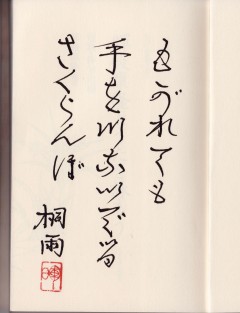 もがれても
手をつないでる
さくらんぼ
桐雨